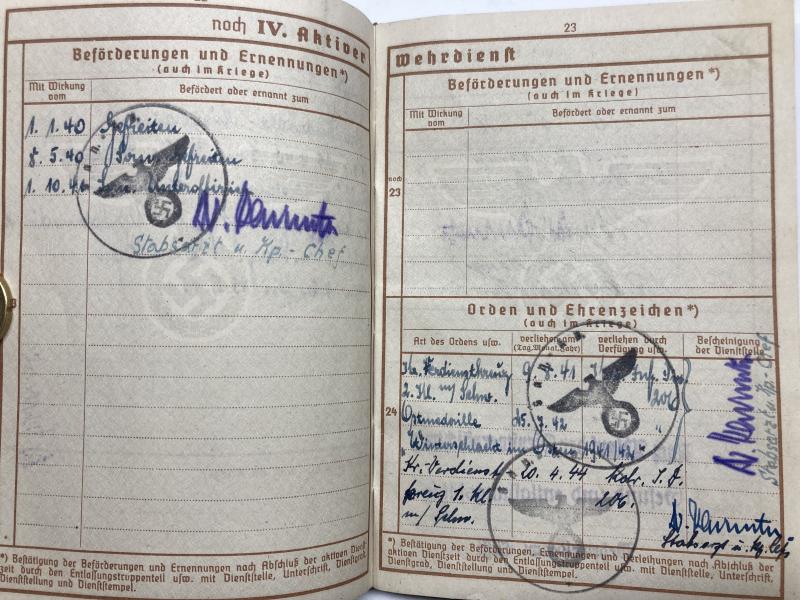 noch IV. Aktiver
Beförderungen und Ernennungen*)
(auch im Kriege)
Mit Wirkung
vom
Befördert oder ernannt zum
1. 1. 40 Gefreiten
8. 5. 40
1. 10. 40 Unteroffizier
Stabsarzt u. Kp.-Chef
*) Bestätigung der Beförderungen und Ernennungen nach Abschluß der aktiven Dienst-
zeit durch den Entlassungstruppenteil usw. mit Dienststelle, Unterschrift, Dienstgrad,
Dienststellung und Dienststempel.
23
Wehrdienst
Beförderungen und Ernennungen*)
(auch im Kriege)
Mit Wirkung
vom
Befördert oder ernannt zum
noch
23
Orden und Ehrenzeichen*)
(auch im Kriege)
Art des Ordens usw.
verliehen am
(Tag, Monat, Jahr)
verliehen durch
Verfügung usw.
Bescheinigung
der Dienststelle
Kr. Verdienstkreuz 9. 8. 41
2. Kl. m/ Schw. 206
24
Ostmedaille 15. 7. 42 "
"Winterschlacht im Osten 1941/42"
Stabsarzt u. Kp.-Chef
Kr. Verdienst- 20. 4. 44 Kdr. I. D.
kreuz 1. Kl. 206.
m/ Schw.
Stabsarzt u. Kp. Chef
*) Bestätigung der Beförderungen, Ernennungen und Verleihungen nach Abschluß der
aktiven Dienstzeit durch den Entlassungstruppenteil usw. mit Dienststelle, Unterschrift,
Dienstgrad, Dienststellung und Dienststempel.